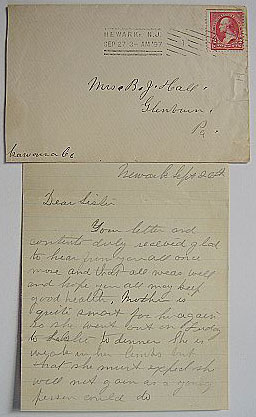 NEWARK, N.J.
SEP 27 3-AM '97
Mrs. B. J. Hall.
Glenburn,
Pa.
Newark Sept 26th
Dear Sister
Your letter and
contents duly received glad
to hear from you all once
more and that all was well
and hope you all may keep
good health, Mother is
quite smart for her again
so she went out on Sunday
to to dinner She is
in her limbs but
that she must expect she
will not gain as a young
person could do